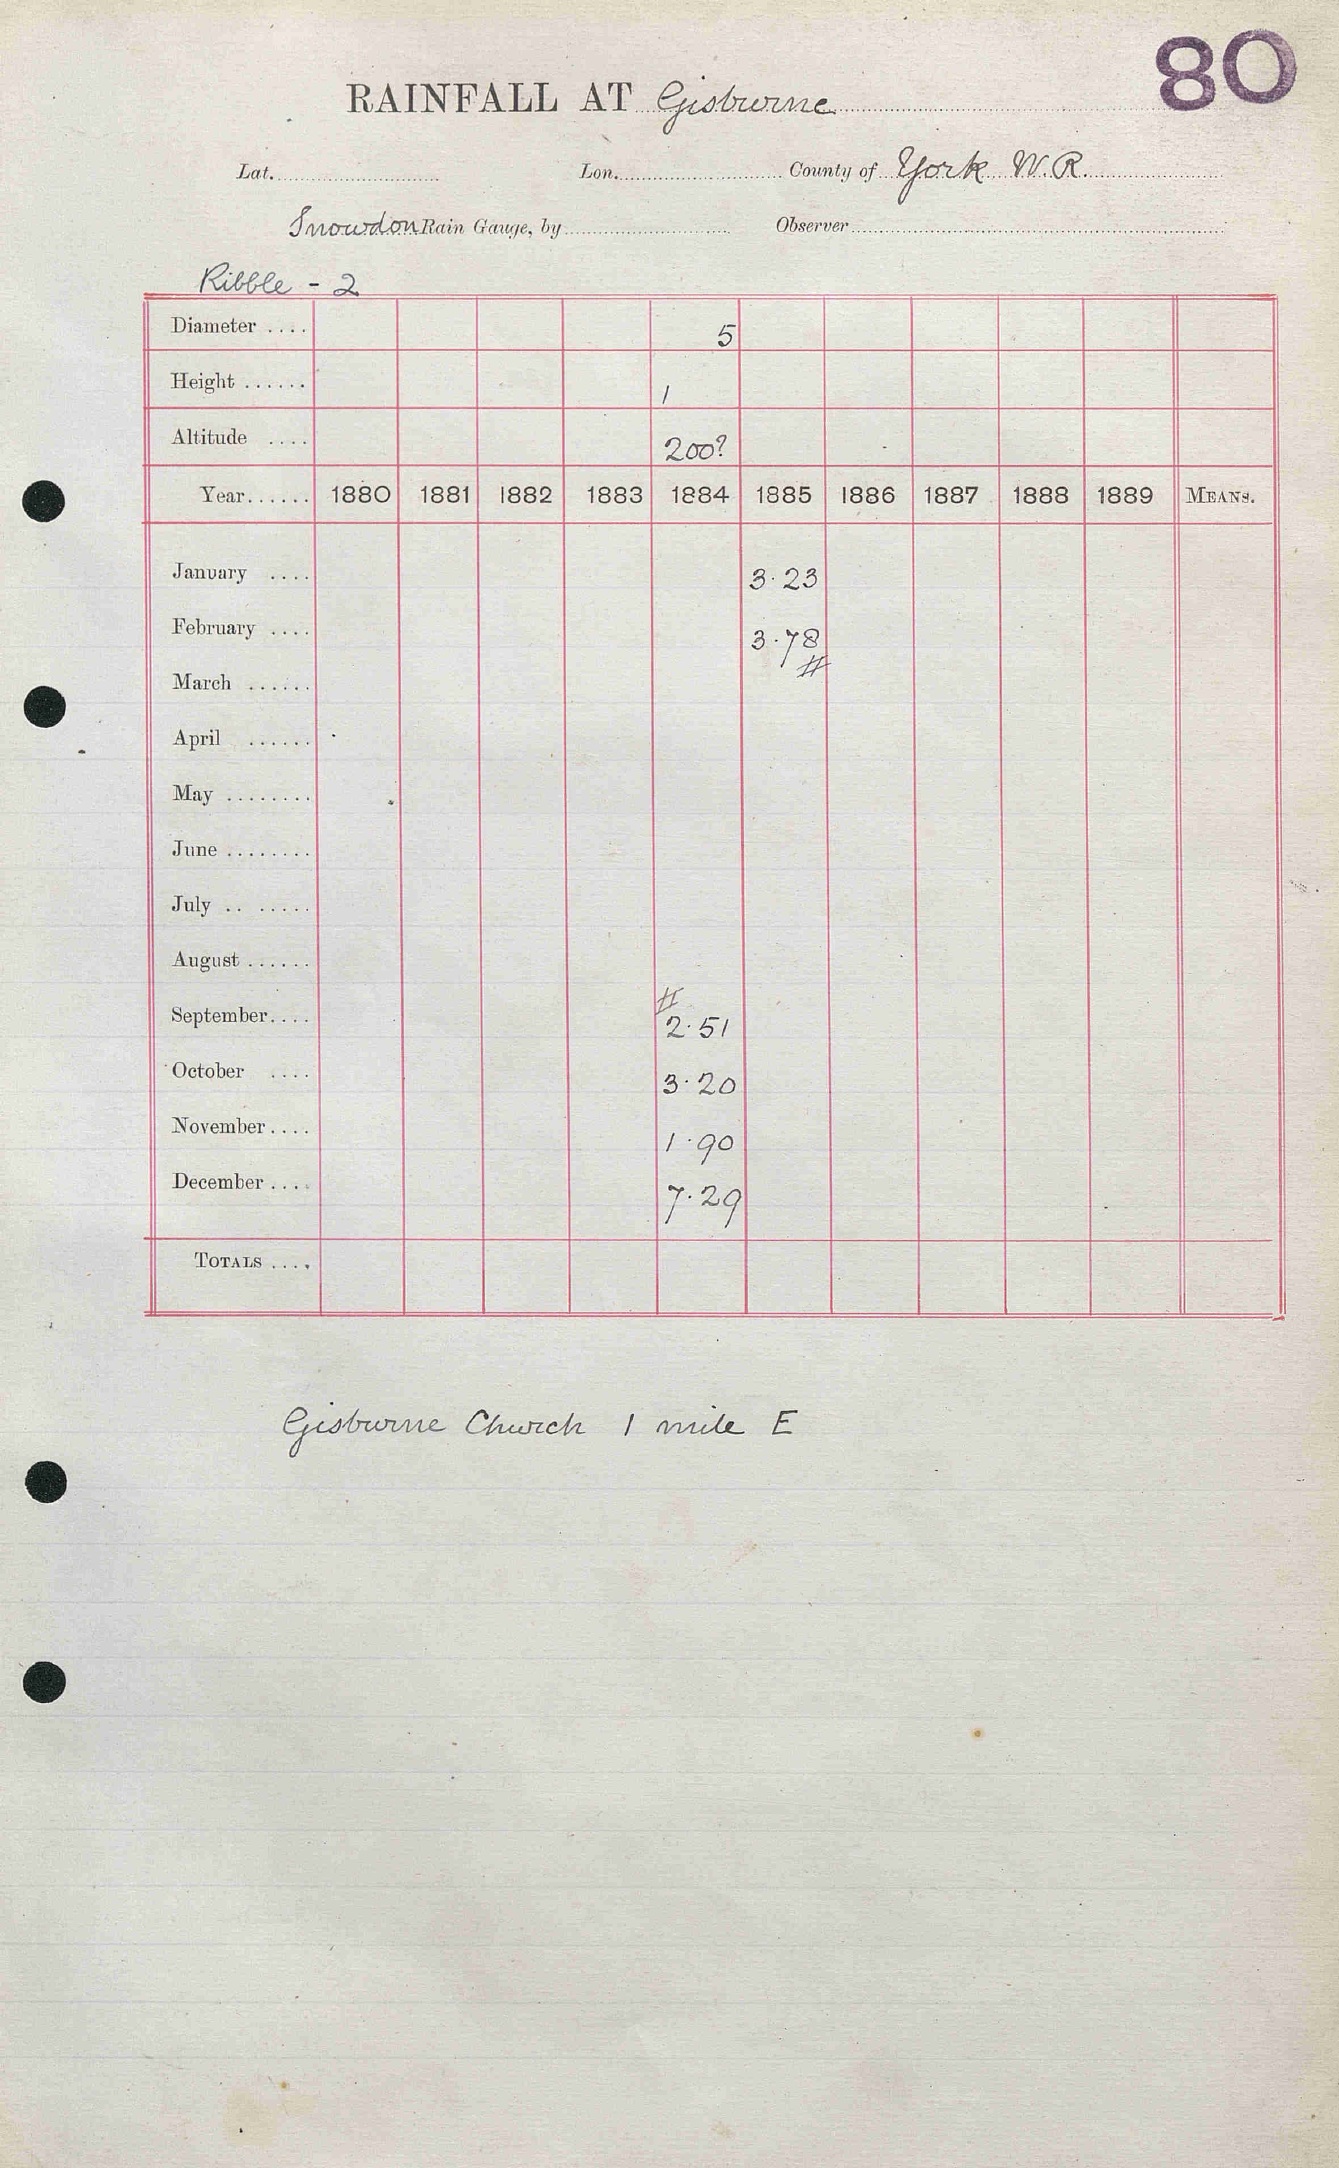 80
RAINFALL AT Gisburne
Lat. Lon. County of York W.R.
Snowdon Rain Gauge, by Observer
Ribble - 2
Diameter .... 5
Height ...... 1
Altitude .... 200?
Year...... 1880 1881 1882 1883 1884 1885 1886 1887 1888 1889 MEANS.
January .... 3.23
February .... 3.78
#
March ......
April ......
May ........
June ........
July .. .....
August ......
#
September.... 2.51
October .... 3.20
November.... 1.90
December .... 7.29
TOTALS ....
Gisburne Church 1 mile E